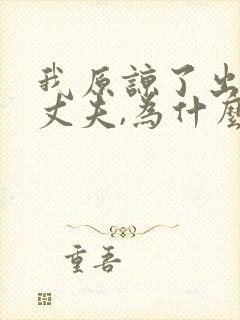 我原諒了出
丈夫,為什麼
重吾